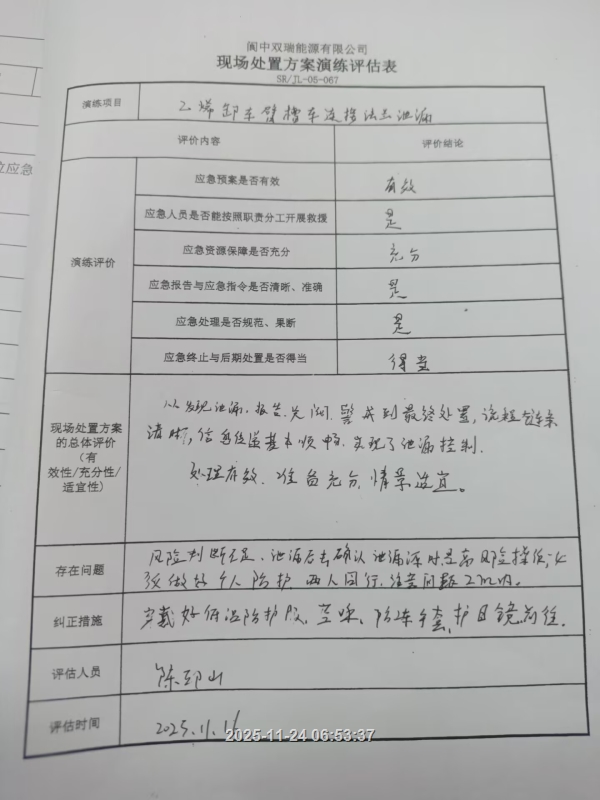 阆中双瑞能源有限公司
现场处置方案演练评估表
SR/JL-05-067
演练项目 乙烯卸车臂槽车连接法兰泄漏
评价内容 评价结论
演练评价
应急预案是否有效 有效
应急人员是否能按照职责分工开展救援 是
应急资源保障是否充分 充分
应急报告与应急指令是否清晰、准确 是
应急处理是否规范、果断 是
应急终止与后期处置是否得当 得当
现场处置方案
的总体评价
(有
效性/充分性/
适宜性)
从发现泄漏、报告、关阀、警戒到最终处置,流程链条
清晰,信息传递基本顺畅,实现了泄漏控制。
处理有效、准备充分、情景适宜。
存在问题
风险判断不足、泄漏后去确认泄漏源时是高风险操作,必
须做好个人防护,两人同行,
纠正措施 穿戴好低温防护服、面罩、防冻手套、护目镜前往.
评估人员
评估时间 2025.11.16
2025-11-24 06:53:37
位应急